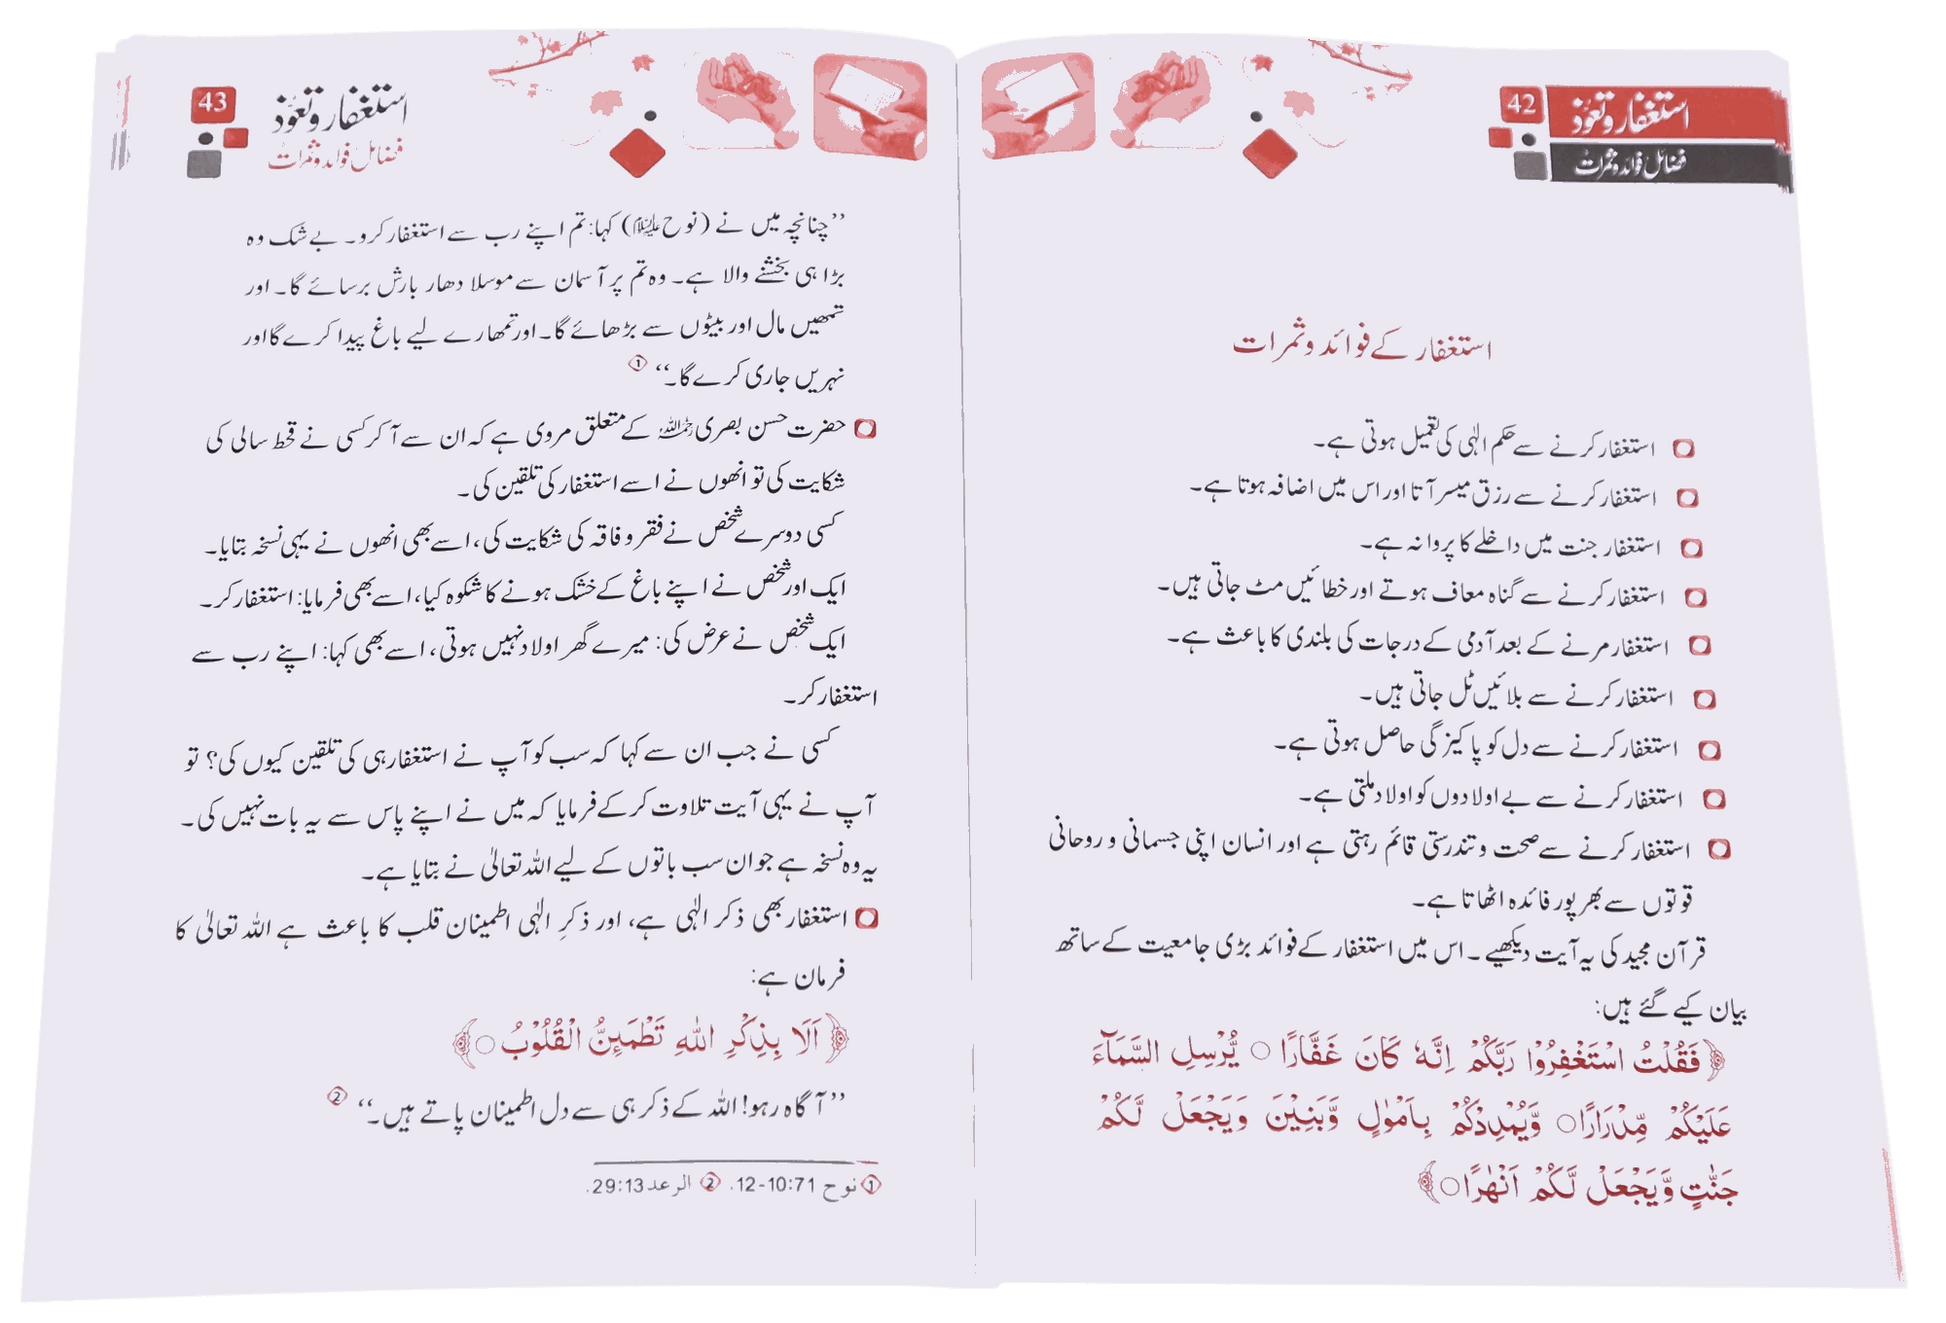 استغفار و تعوّذ
42
فضائل فوائد و ثمرات
استغفار کے فوائد و ثمرات
استغفار کرنے سے حکم الٰہی کی تعمیل ہوتی ہے۔
استغفار کرنے سے رزق میسر آتا اور اس میں اضافہ ہوتا ہے۔
استغفار جنت میں داخلے کا پروانہ ہے۔
استغفار کرنے سے گناہ معاف ہوتے اور خطائیں مٹ جاتی ہیں۔
استغفار مرنے کے بعد آدمی کے درجات کی بلندی کا باعث ہے۔
استغفار کرنے سے بلائیں ٹل جاتی ہیں۔
استغفار کرنے سے دل کو پاکیزگی حاصل ہوتی ہے۔
استغفار کرنے سے بے اولادوں کو اولاد ملتی ہے۔
استغفار کرنے سے صحت و تندرستی قائم رہتی ہے اور انسان اپنی جسمانی و روحانی
قوتوں سے بھرپور فائدہ اٹھاتا ہے۔
قرآن مجید کی یہ آیت دیکھیے۔ اس میں استغفار کے فوائد بڑی جامعیت کے ساتھ
بیان کیے گئے ہیں:
﴿فَقُلْتُ اسْتَغْفِرُوْا رَبَّكُمْ اِنَّهٗ كَانَ غَفَّارًا ○ يُّرْسِلِ السَّمَآءَ
عَلَيْكُمْ مِّدْرَارًا ○ وَّيُمْدِدْكُمْ بِاَمْوٰلٍ وَّبَنِيْنَ وَيَجْعَلْ لَّكُمْ
جَنّٰتٍ وَّيَجْعَلْ لَّكُمْ اَنْهٰرًا ○﴾
استغفار و تعوّذ
43
فضائل فوائد و ثمرات
’’چنانچہ میں نے (نوح علیہ السلام) کہا: تم اپنے رب سے استغفار کرو۔ بے شک وہ
بڑا ہی بخشنے والا ہے۔ وہ تم پر آسمان سے موسلا دھار بارش برسائے گا۔ اور
تمھیں مال اور بیٹوں سے بڑھائے گا۔ اور تمھارے لیے باغ پیدا کرے گا اور
نہریں جاری کرے گا۔‘‘ ①
حضرت حسن بصری رحمہ اللہ کے متعلق مروی ہے کہ ان سے آ کر کسی نے قحط سالی کی
شکایت کی تو انھوں نے اسے استغفار کی تلقین کی۔
کسی دوسرے شخص نے فقر و فاقہ کی شکایت کی، اسے بھی انھوں نے یہی نسخہ بتایا۔
ایک اور شخص نے اپنے باغ کے خشک ہونے کا شکوہ کیا، اسے بھی فرمایا: استغفار کر۔
ایک شخص نے عرض کی: میرے گھر اولاد نہیں ہوتی، اسے بھی کہا: اپنے رب سے
استغفار کر۔
کسی نے جب ان سے کہا کہ سب کو آپ نے استغفار ہی کی تلقین کیوں کی؟ تو
آپ نے یہی آیت تلاوت کر کے فرمایا کہ میں نے اپنے پاس سے یہ بات نہیں کی۔
یہ وہ نسخہ ہے جو ان سب باتوں کے لیے اللہ تعالیٰ نے بتایا ہے۔
استغفار بھی ذکر الٰہی ہے، اور ذکرِ الٰہی اطمینان قلب کا باعث ہے اللہ تعالیٰ کا
فرمان ہے:
﴿اَلَا بِذِكْرِ اللّٰهِ تَطْمَئِنُّ الْقُلُوْبُ ○﴾
’’آگاہ رہو! اللہ کے ذکر ہی سے دل اطمینان پاتے ہیں۔‘‘ ②
① نوح 71:10-12. ② الرعد 13:29.